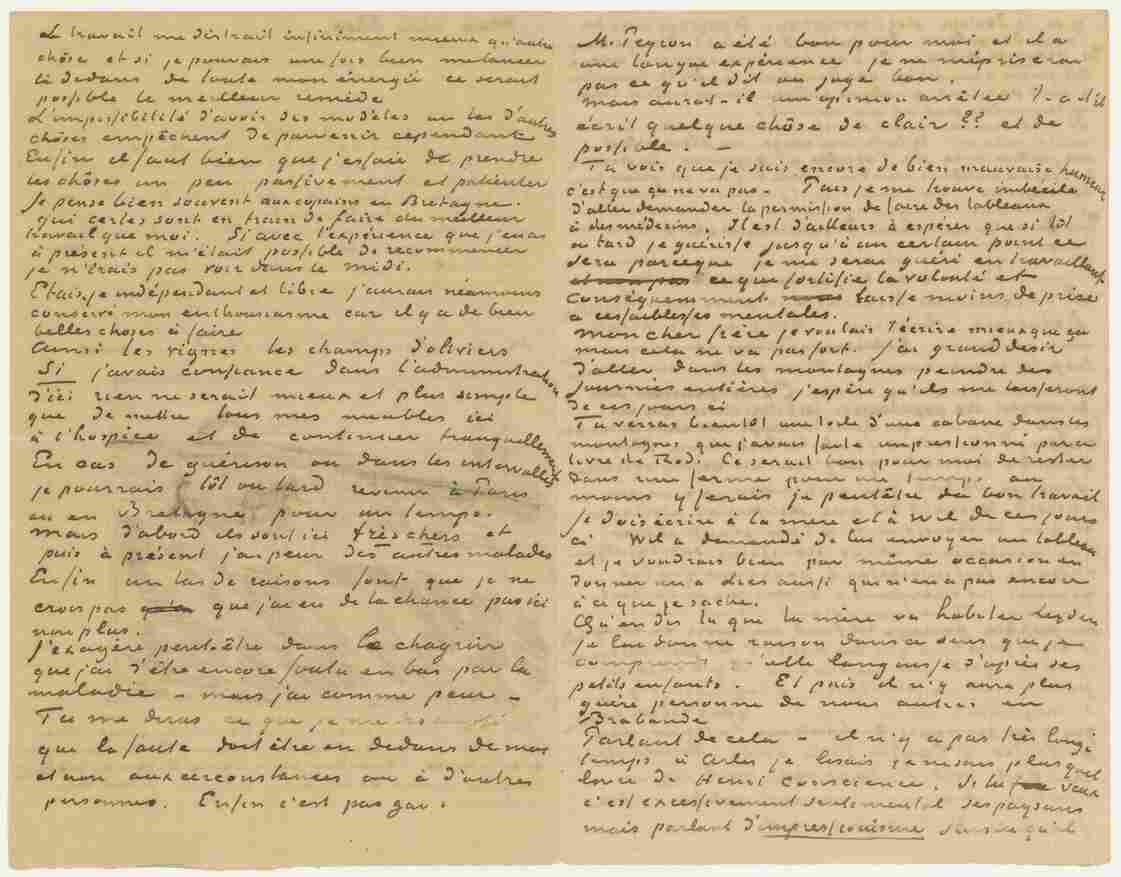 Le travail me distrait infiniment mieux qu'autre
chôse et si je pouvais une fois bien me lancer
là dedans de toute mon énergie ce serait
possible le meilleur remède
L'impossibilité d'avoir des modèles un tas d'autres
chôses empêchent de parvenir cependant
Enfin il faut bien que j'essaie de prendre
les chôses un peu passivement et patienter
Je pense bien souvent aux copains en Bretagne.
qui certes sont en train de faire du meilleur
travail que moi. Si avec l'expérience que j'en ai
à présent il m'était possible de recommencer
je n'irais pas voir dans le midi.
Etais-je indépendant et libre j'aurais néamoins
conservé mon enthousiasme car il y a de bien
belles choses à faire
Ainsi les vignes les champs d'oliviers
Si j'avais confiance dans l'administration
d'ici rien ne serait mieux et plus simple
que de mettre tous mes meubles ici
à l'hospice et de continuer tranquillement
En cas de guérison ou dans les intervalles
je pourrais tôt ou tard revenir à Paris
ou en Bretagne pour un temps.
mais d'abord ils sont ici très chers et
puis à présent j'ai peur des autres malades
Enfin un tas de raisons font que je ne
crois pas que j'aie eu de la chance pas ici
non plus.
J'exagère peut-être dans le chagrin
que j'ai d'être encore foutu en bas par la
maladie – mais j'ai comme peur –
Tu me diras ce que je me
que la faute doit être en dedans de moi
et non aux circonstances ou à d'autres
personnes. Enfin c'est pas gai.
M. Peyron a été bon pour moi et il a
une longue expérience je ne mépriserai
pas ce qu'il dit ou juge bon.
mais aurat-il une opinion arrêtée T-a-t-il
écrit quelque chôse de clair ?? et de
possible. –
Tu vois que je suis encore de bien mauvaise humeur
c'est que ça ne va pas – Puis je me trouve imbécile
d'aller demander la permission de faire des tableaux
à des médecins. Il est d'ailleurs à espérer que si tôt
ou tard je guérisse jusqu'à un certain point ce
sera parceque je me serai guéri en travaillant
et non pas ce qui fortifie la volonté et
conséquemment laisse moins de prise
à ces faiblesses mentales.
mon cher frère je voulais t'écrire mieux que ça
mais cela ne va pas fort. J'ai grand désir
d'aller dans les montagnes peindre des
journées entières j'espère qu'ils me laisseront
de ces jours ci
Tu verras bientôt une toile d'une cabane dans les
montagnes que j'avais faite impressionné par ce
livre de Rod. Ce serait bon pour moi de rester
dans une ferme pour un temps au
moins y ferais je peutêtre du bon travail
Je dois écrire à la mère et à Wil de ces jours
ci Wil a demandé de lui envoyer un tableau
et je voudrais bien par même occasion en
donner un à Lies aussi qui n'en a pas encore
à ce que je sache.
Qu'en dis tu que la mère va habiter Leyden
je lui donne raison dans ce sens que je
comprends qu'elle languisse d'après ses
petits enfants. Et puis il n'y aura plus
guère personne de nous autres en
Brabande
Parlant de cela – il n'y a pas très long
temps à Arles je lisais je ne sais plus quel
livre de Henri Conscience. Si tu veux
c'est excessivement sentimental ses paysans
mais parlant d'impressionisme sais-tu qu'il